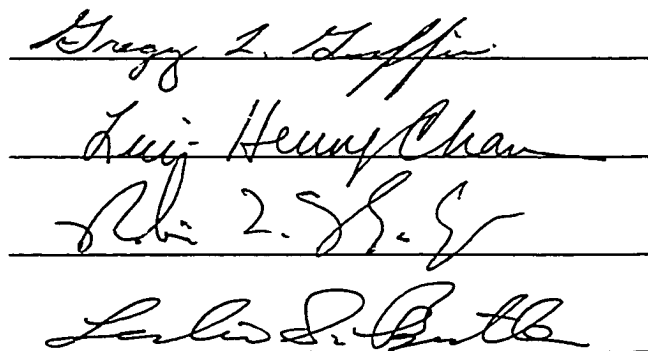 Gregg L. Griffin
Luis Henry Chan
Robin L.
Leslie G. Butler